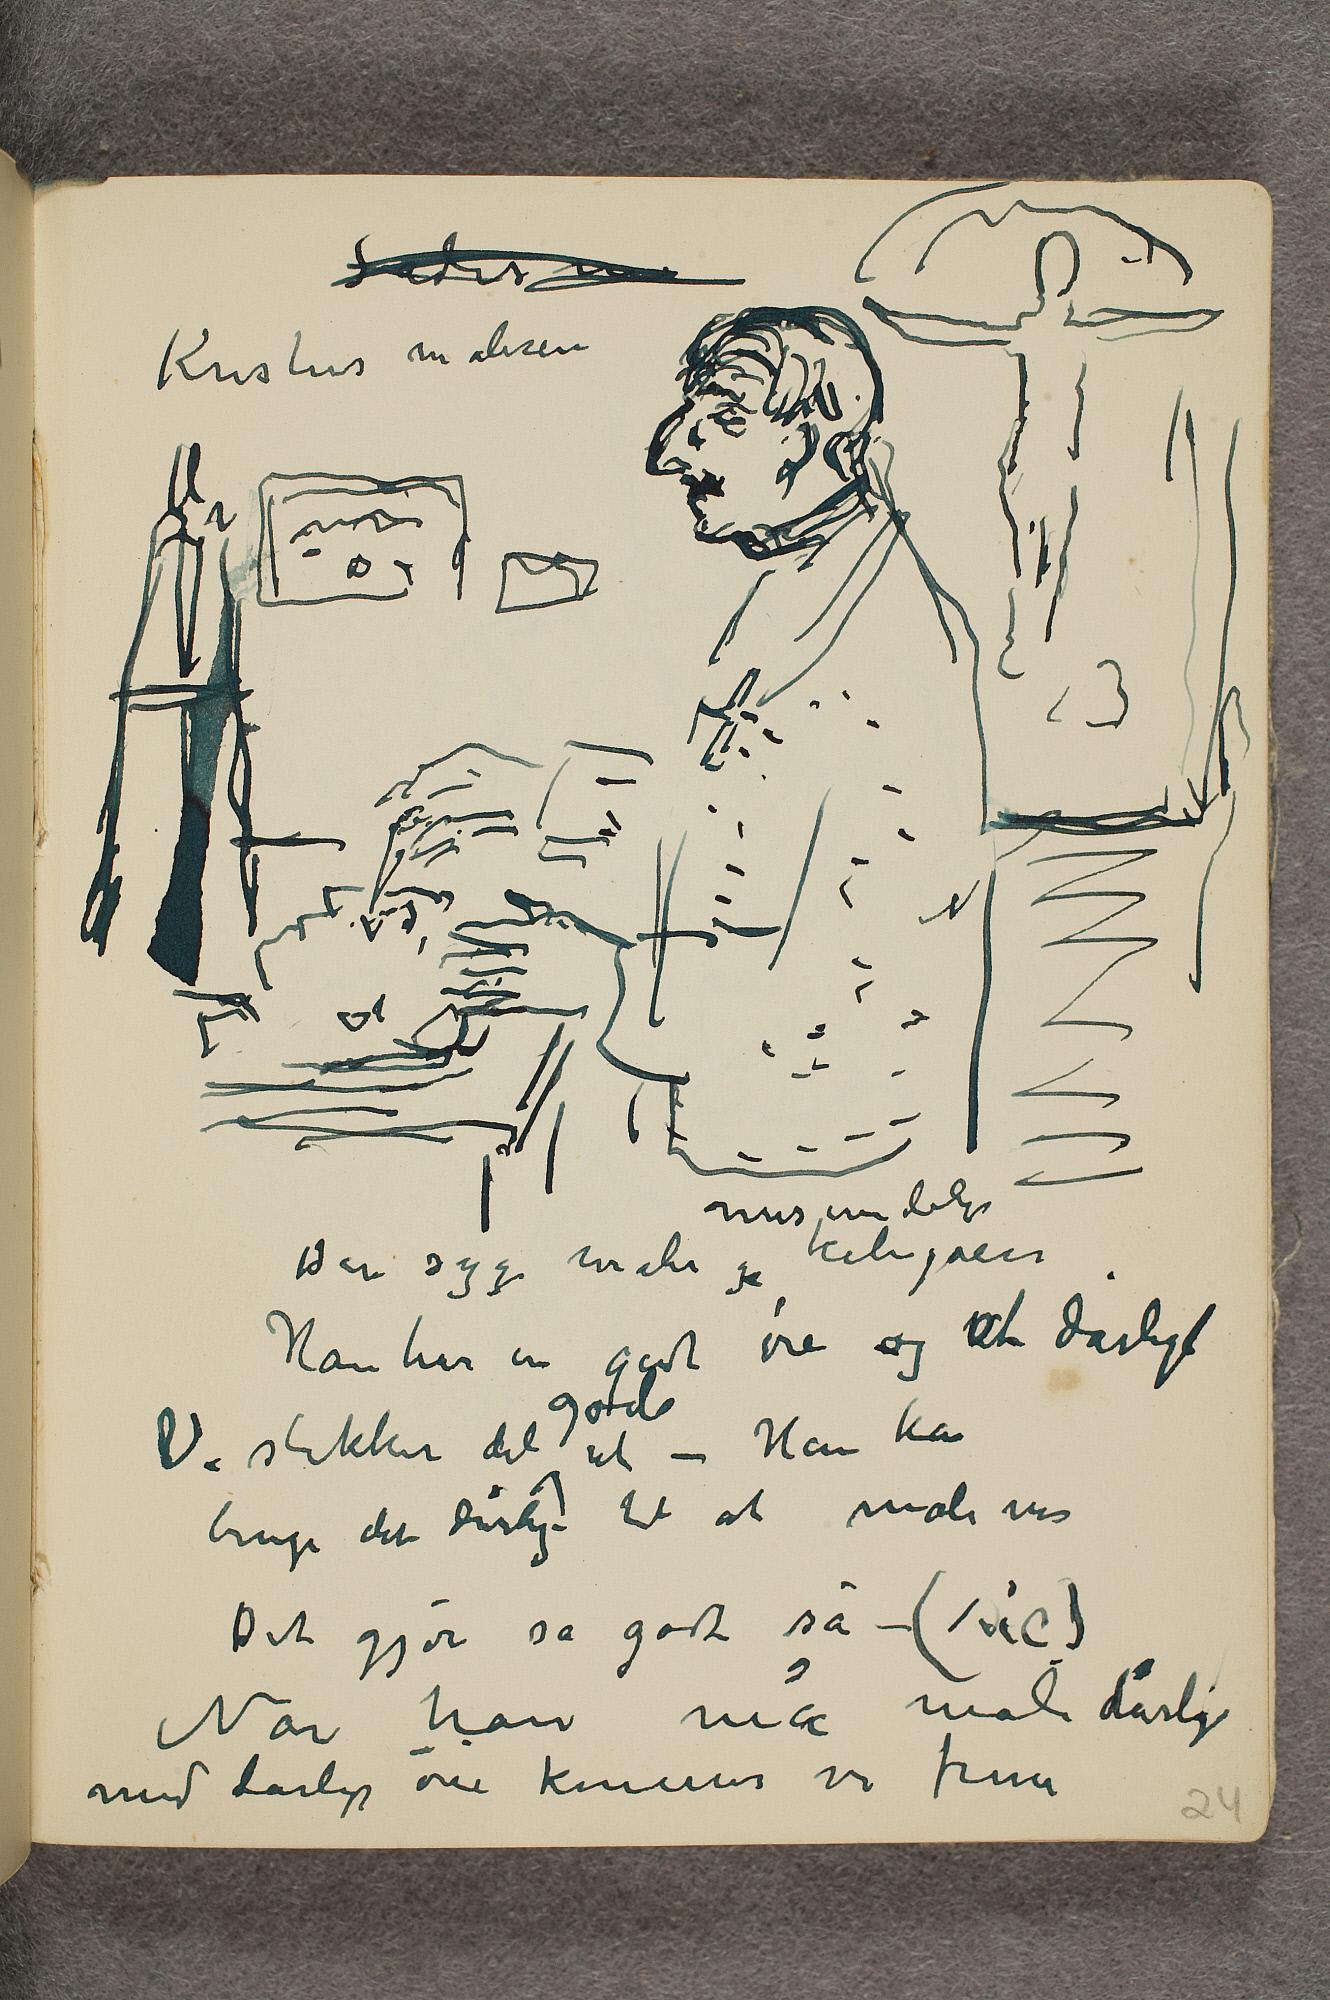 Kristus maleren
misundelige
Den syge maler og kollegaer
Han har en godt öie og et dårligt
Vi stikker det gode ut — Han kan
bruge det dårlige til at male mes
Det gjör sa godt så — (
Når han må male dårlig
med darlige öie kommer vi frem
24